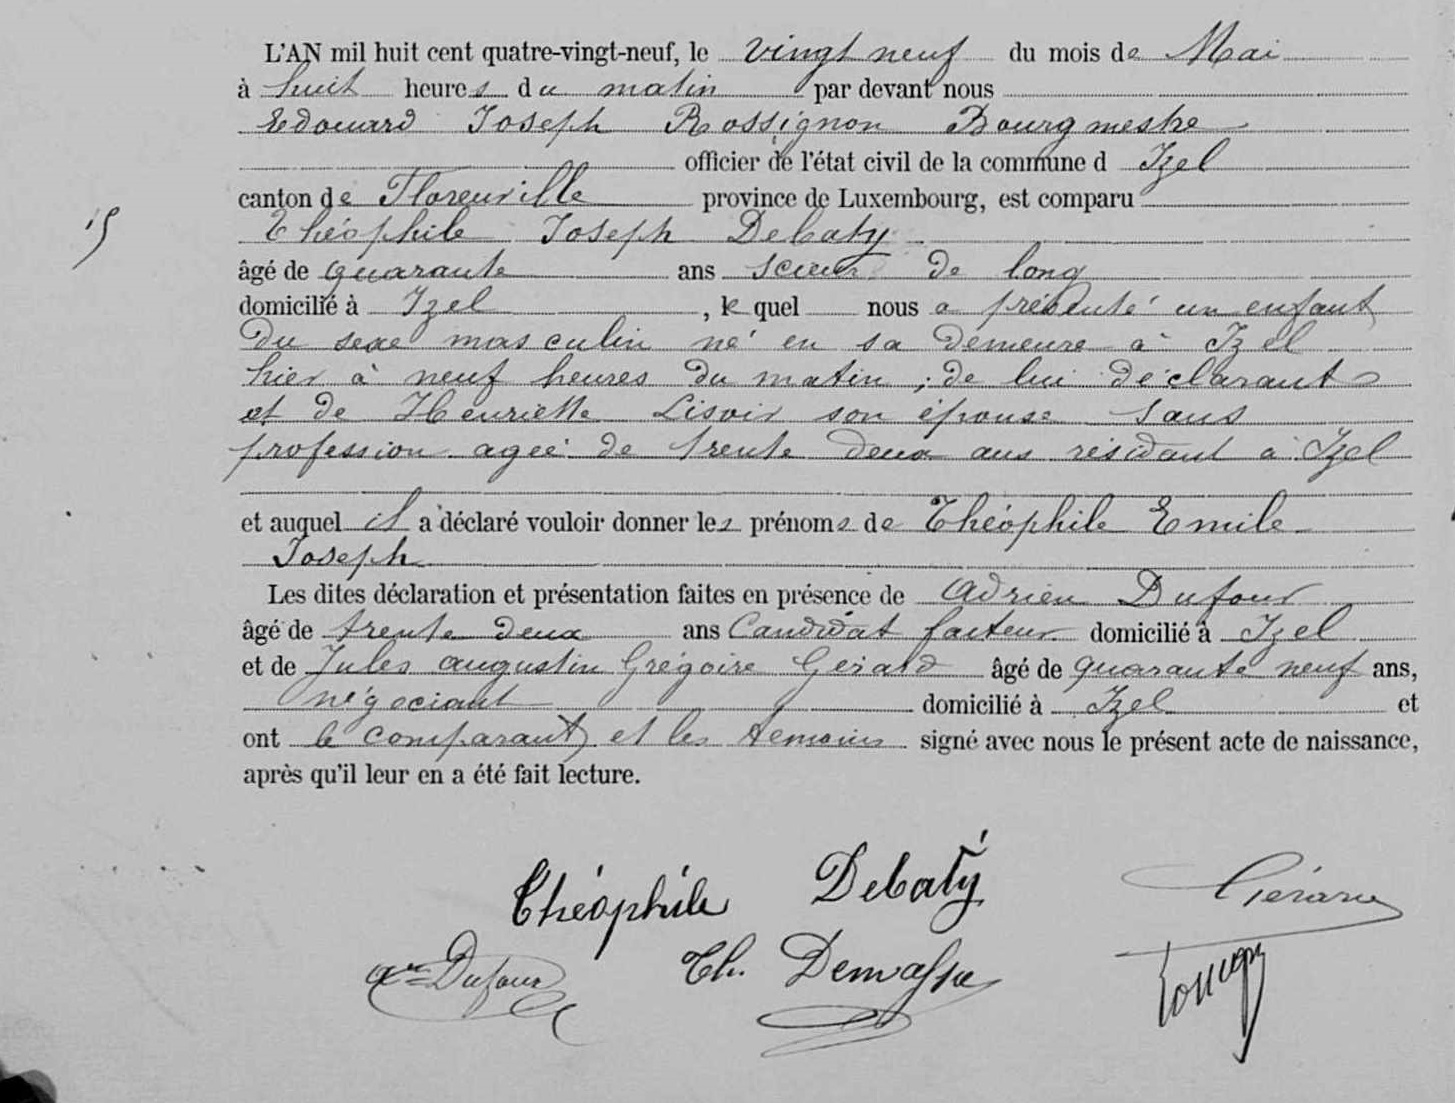 L'AN mil huit cent quatre-vingt-neuf, le vingt neuf du mois de Mai
à huit heures du matin par devant nous
Edouard Joseph Rossignon Bourgmestre
officier de l'état civil de la commune d Izel
canton de Florenville province de Luxembourg, est comparu
15
Théophile Joseph Debaty
âgé de quarante ans scieur de long
domicilié à Izel, le quel nous a présenté un enfant
du sexe masculin né en sa demeure à Izel
hier à neuf heures du matin ; de lui déclarant
et de Henriette Lisoir son épouse sans
profession agée de trente deux ans résidant a Izel
et auquel il a déclaré vouloir donner les prénoms de Théophile Emile
Joseph
Les dites déclaration et présentation faites en présence de Adrien Dufour
âgé de trente deux ans Candidat facteur domicilié à Izel
et de Jules augustin Grégoire Gérard âgé de quarante neuf ans,
négociant domicilié à Izel et
ont le comparant et les témoins signé avec nous le présent acte de naissance,
après qu'il leur en a été fait lecture.
Théophile Debaty Gérard
Dufour Th.